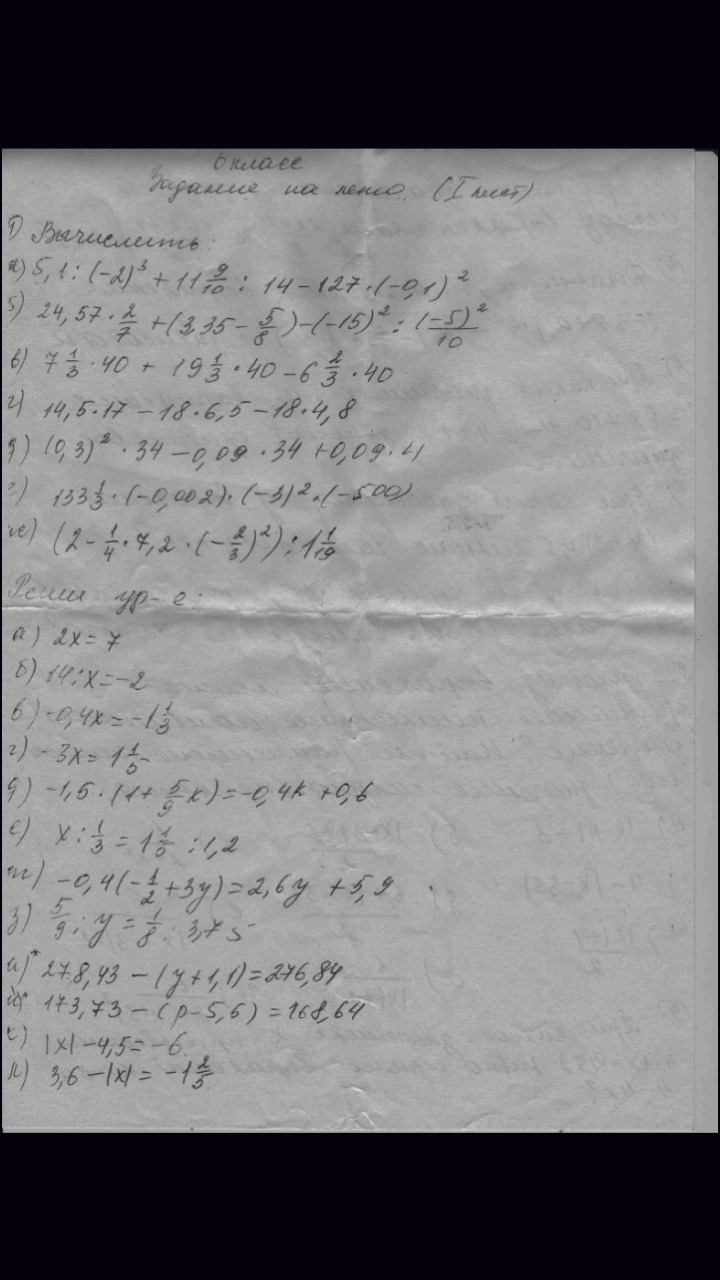 6 класс
Задание на лето. (I лист)
1) Вычислить:
а) 5,1 : (-2)³ + 11 9/10 : 14 - 127 · (-0,1)²
б) 24,57 · 2/7 + (3,35 - 5/8) - (-15)² : (-5)²/10
в) 7 1/3 · 40 + 19 1/3 · 40 - 6 2/3 · 40
г) 14,5 · 17 - 18 · 6,5 - 18 · 4,8
д) (0,3)² · 34 - 0,09 · 34 + 0,09 · 4
133 1/3 · (-0,002) · (-3)² · (-500)
ж) (2 - 1/4 · 7,2 · (-2/3)²) : 1 1/19
Реши ур-е:
а) 2x = 7
б) 14 : x = -2
в) -0,4x = -1 1/3
г) -3x = 1 1/5
д) -1,5 · (1 + 5/9 k) = -0,4k + 0,6
е) x : 1/3 = 1 1/5 : 1,2
ж) -0,4(-1/2 + 3y) = 2,6y + 5,9
з) 5/9 : y = 1/8 : 3,75
и)* 278,43 - (y + 1,1) = 276,84
й)* 173,73 - (p - 5,6) = 168,64
к) |x| - 4,5 = -6
л) 3,6 - |x| = -1 2/5